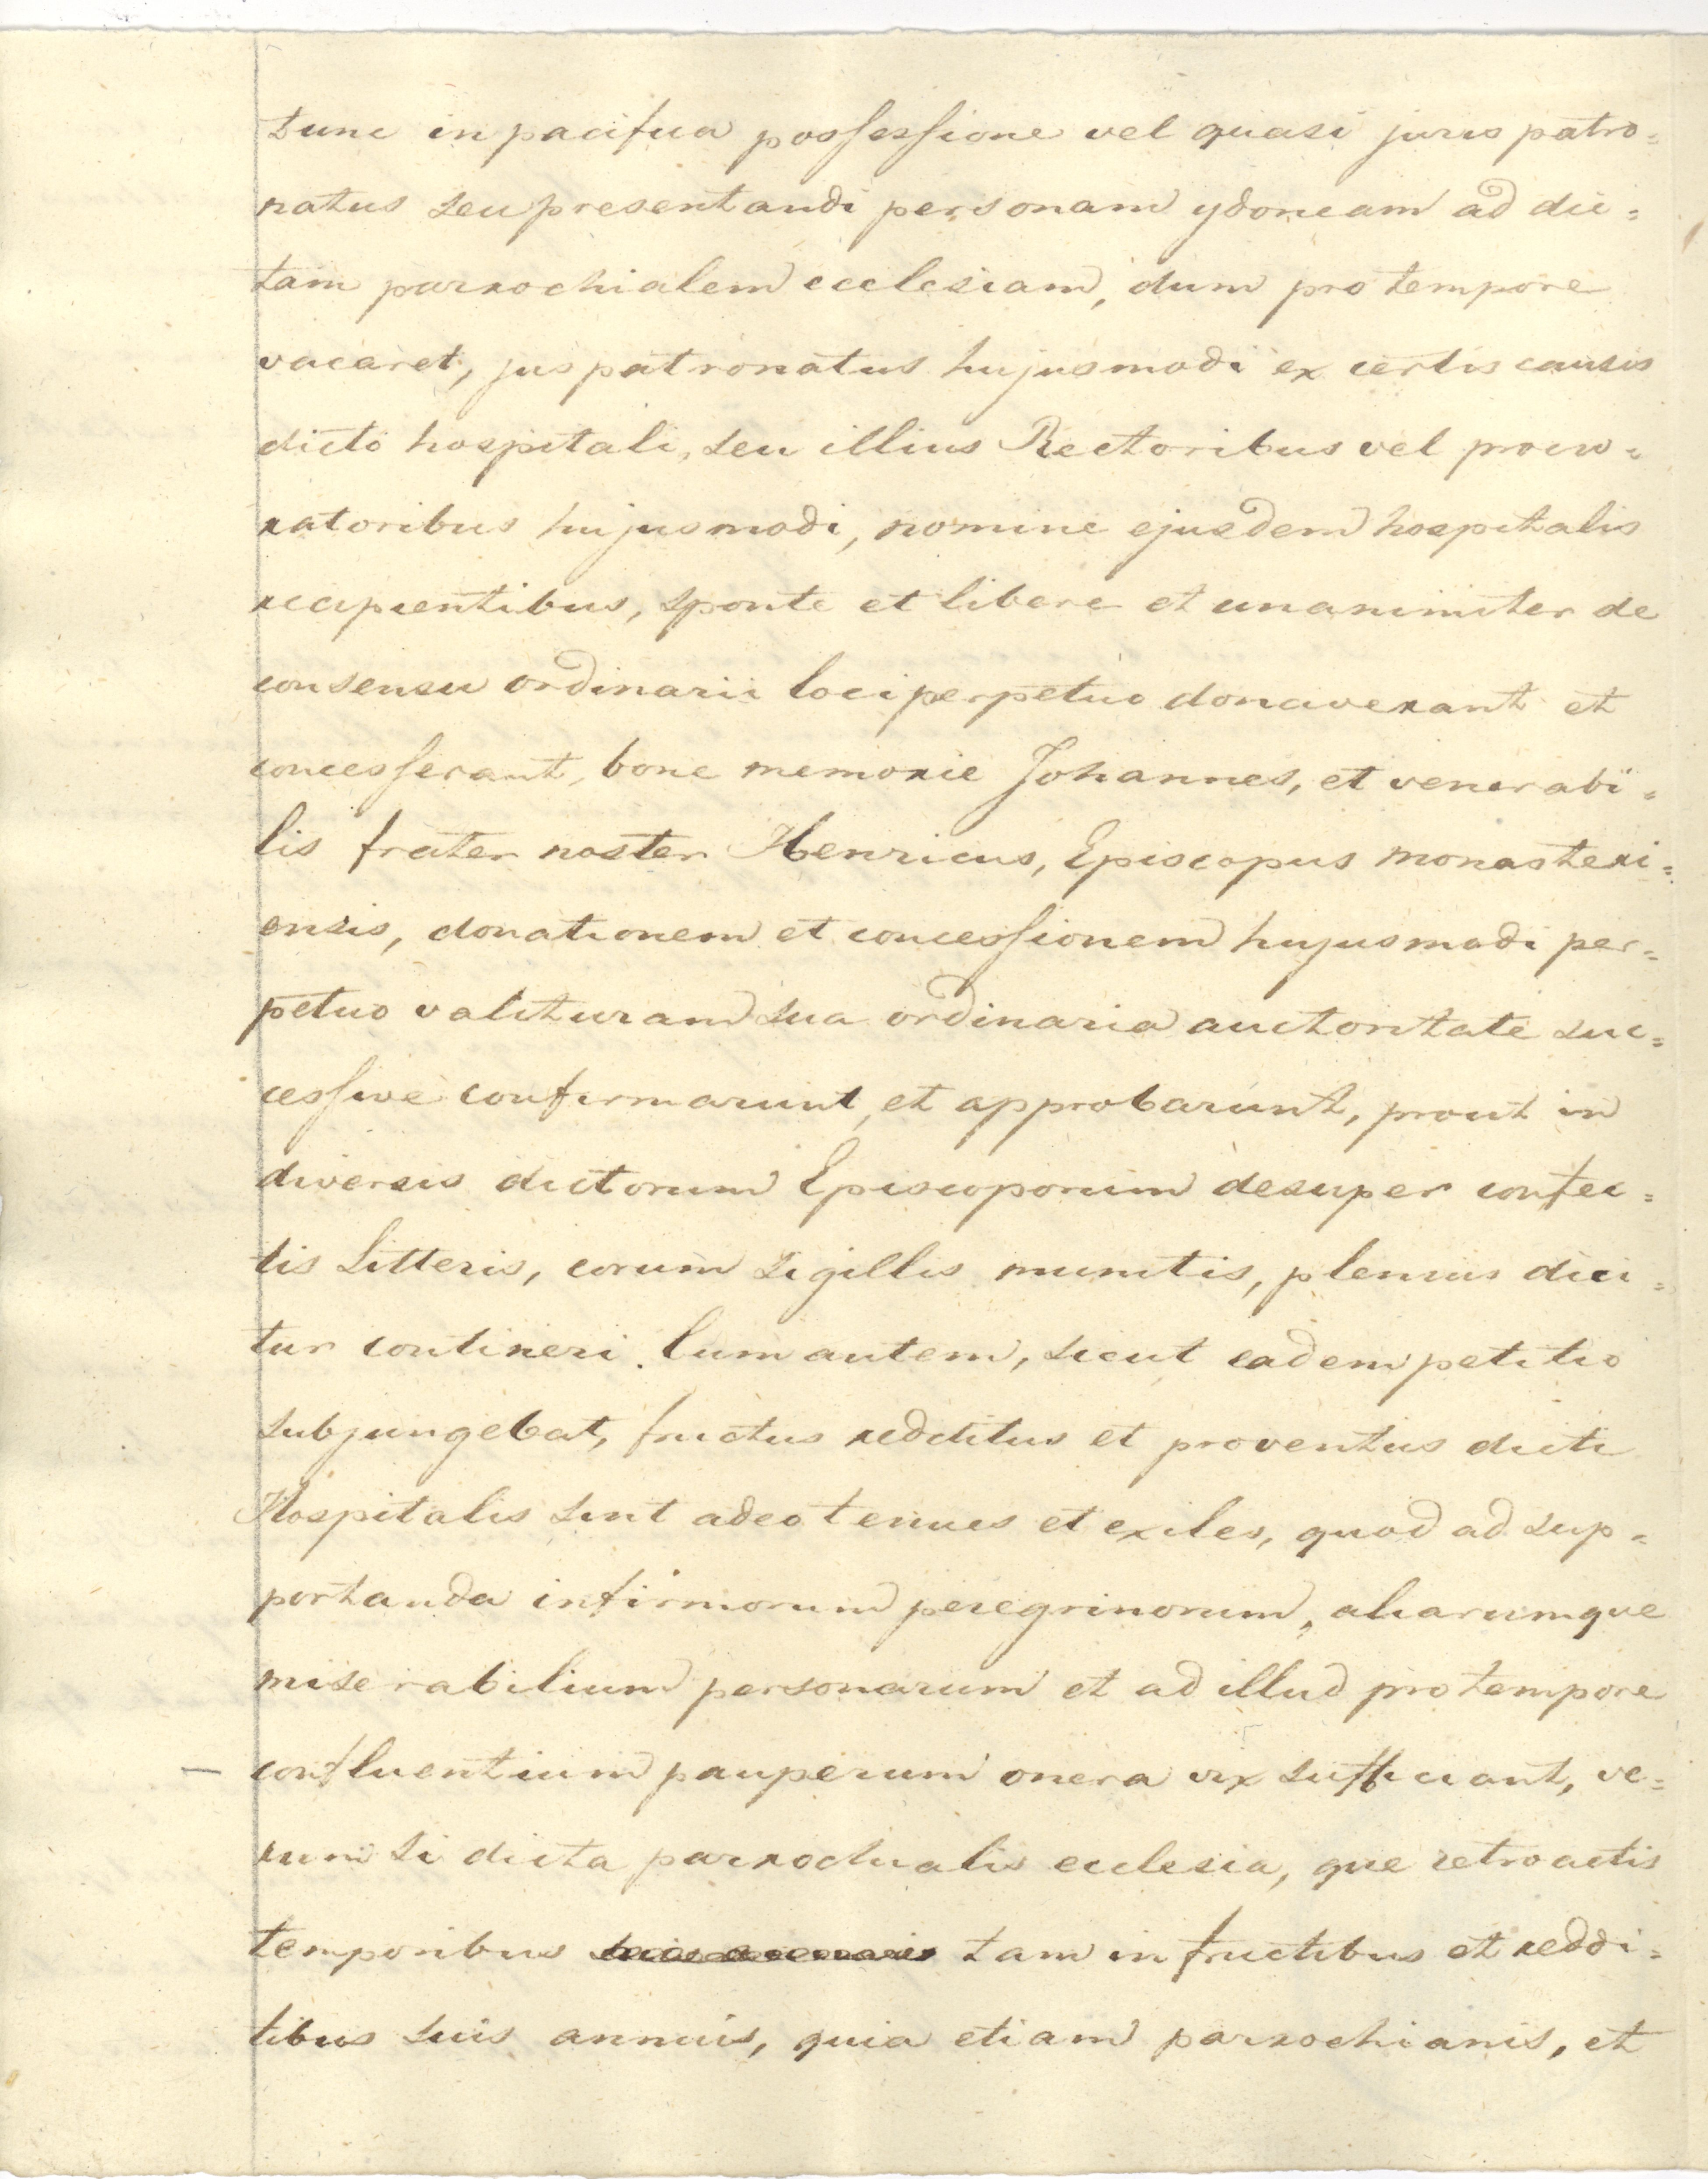 tunc in pacifica possessione vel quasi juris patro=
natus seu presentandi personam ydoneam ad dic=
tam parrochialem ecclesiam, dum pro tempore
vacaret, jus patronatus hujusmodi ex certis causis
dicto hospitali, seu illius Rectoribus vel procu=
ratoribus hujusmodi, nomine ejusdem hospitalis
recipientibus, sponte et libere et unanimiter de
consensu ordinarii loci perpetuo donaverant et
concesserant, bone memorie Johannes, et venerabi=
lis frater noster Henricus, Episcopus monasteri=
ensis, donationem et concessionem hujusmodi per=
petuo valituram sua ordinaria auctoritate suc=
cessive confirmarunt, et approbarunt, prout in
diversis dictorum Episcoporum desuper confec=
tis Litteris, eorum Sigillis munitis, plenius dici=
tur contineri. Cum autem, sicut eadem petitio
subjungebat, fructus redditus et proventus dicti
Hospitalis sint adeo tenues et exiles, quod ad sup=
portanda infirmorum peregrinorum, aliarumque
miserabilium personarum et ad illud pro tempore
– confluentium pauperum onera vix sufficiant, ve=
rum si dicta parrochialis ecclesia, que retroactis
temporibus tam in fructibus et reddi=
tibus suis annuis, quia etiam parrochianis, et